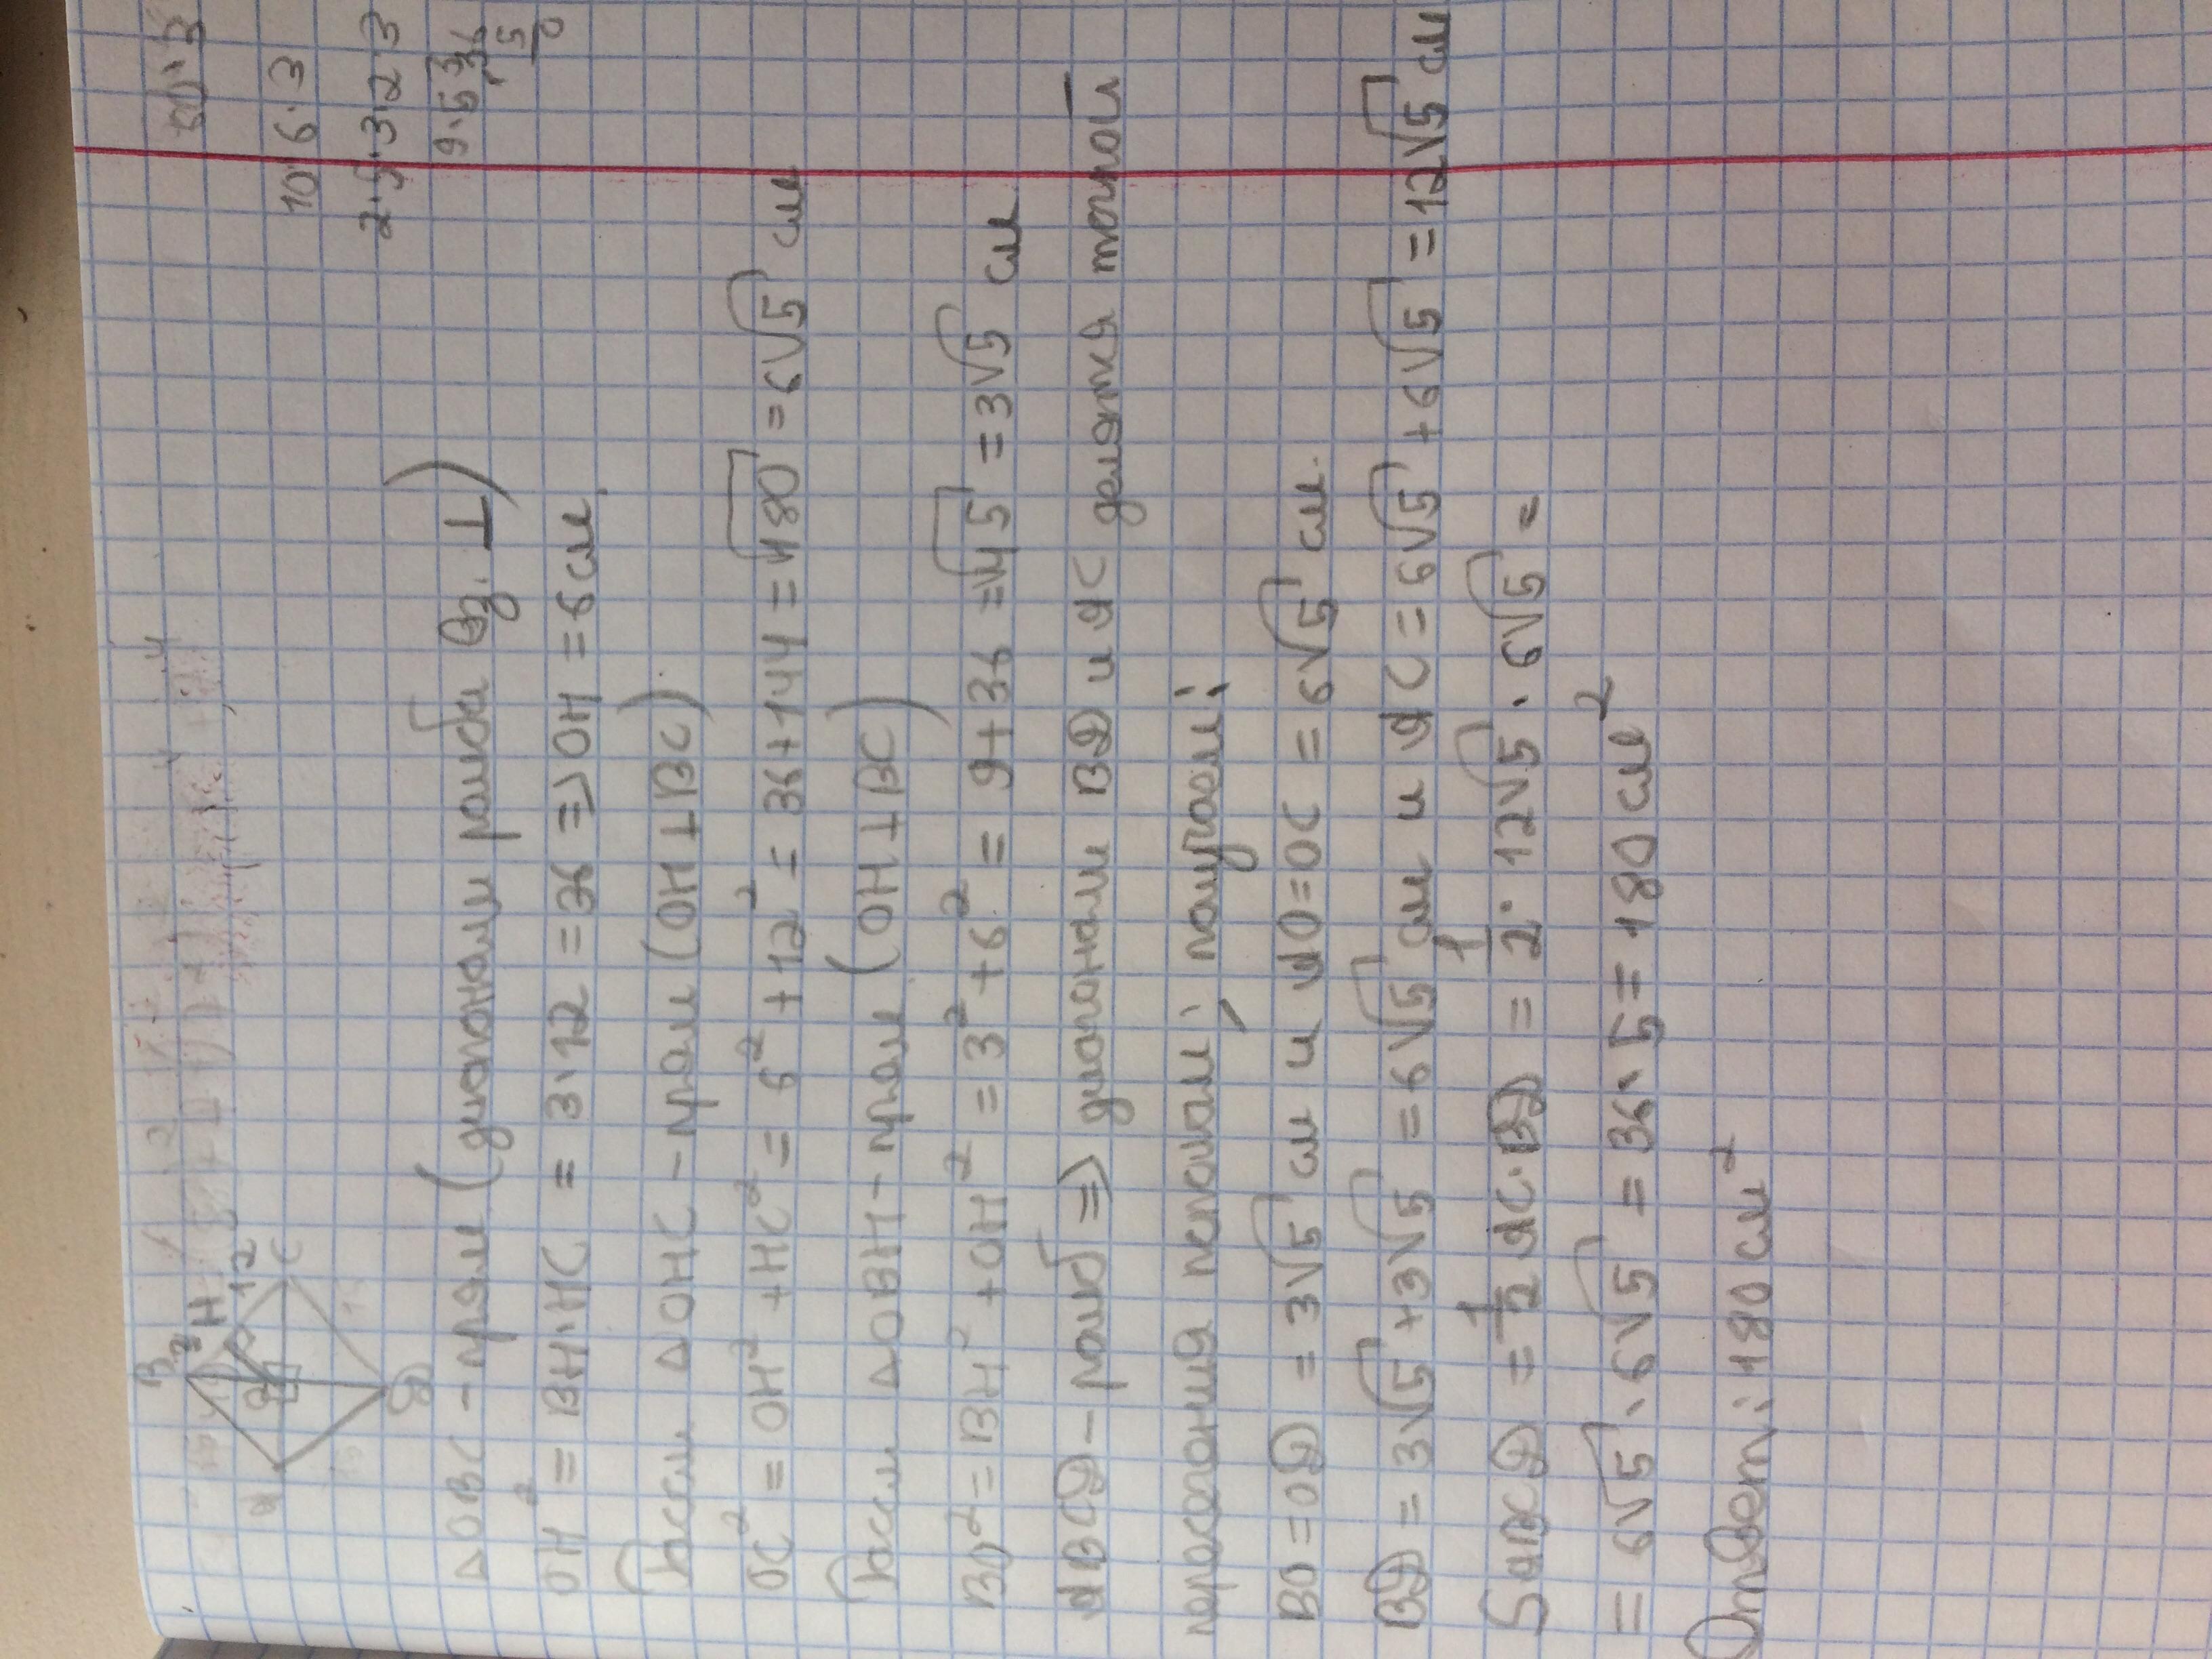 10·6·3
2·5·3·2·3
9·5
36
5
0
B
3
H
12
C
O
A
D
△OBC - прям (диагонали ромба вз. ⊥)
OH² = BH·HC = 3·12 = 36 => OH = 6 см.
Рассм △OHC - прям (OH⊥BC)
OC² = OH² + HC² = 6² + 12² = 36+144 = √180 = 6√5 см
Рассм △OBH - прям (OH⊥BC)
BO² = BH² + OH² = 3² + 6² = 9+36 = √45 = 3√5 см
ABCD - ромб => диагонали BD и AC делятся точкой
пересечения пополам, получаем:
BO = OD = 3√5 см и AO=OC = 6√5 см.
BD = 3√5 + 3√5 = 6√5 см и AC = 6√5 + 6√5 = 12√5 см
SABCD = 1/2 AC·BD = 1/2 · 12√5 · 6√5 =
= 6√5 · 6√5 = 36·5 = 180 см²
Ответ: 180 см²